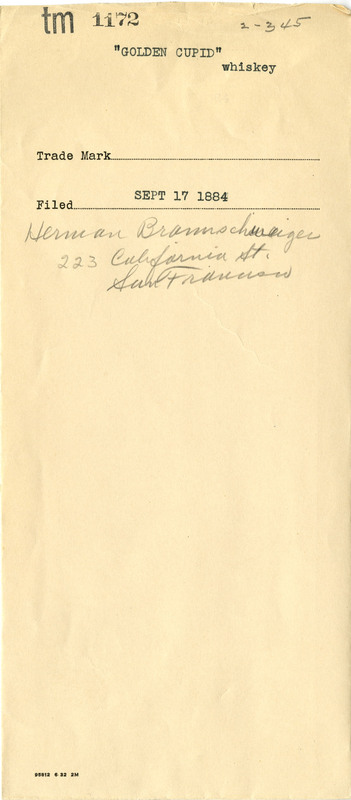 tm 1172 2-345
"GOLDEN CUPID"
whiskey
Trade Mark
SEPT 17 1884
Filed
Herman Braunschweiger
223 California St.
San Francisco
95912 6 32 2M